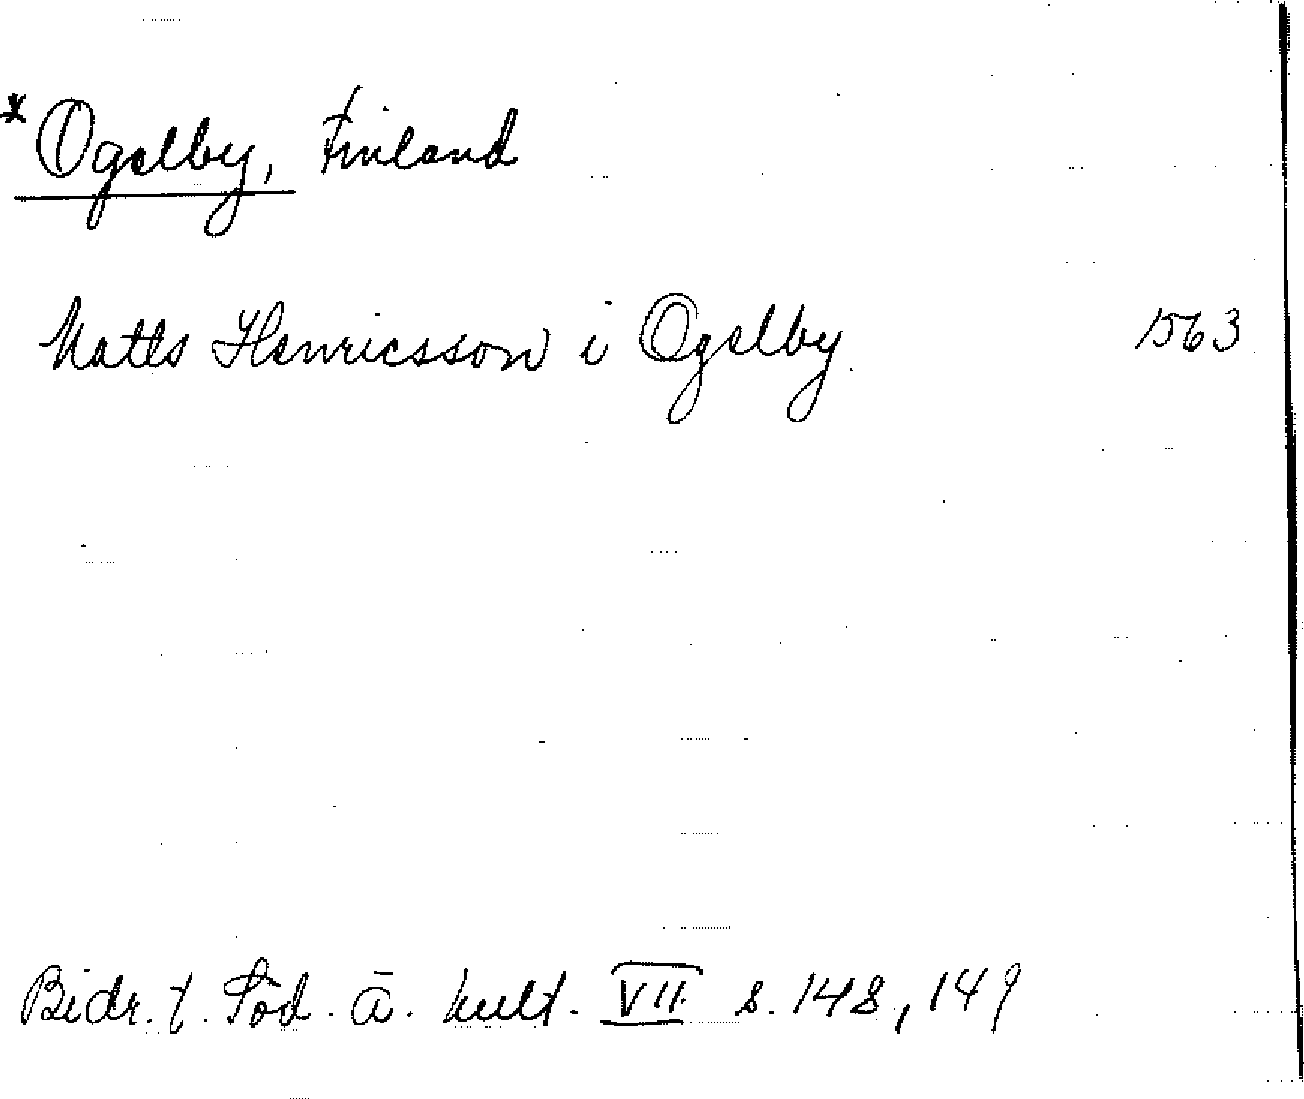 *Ogelby, Finland
Matts Henricsson i Ogelby. 1563
Bidr. t. Söd. ä. kult. VII s. 148, 149